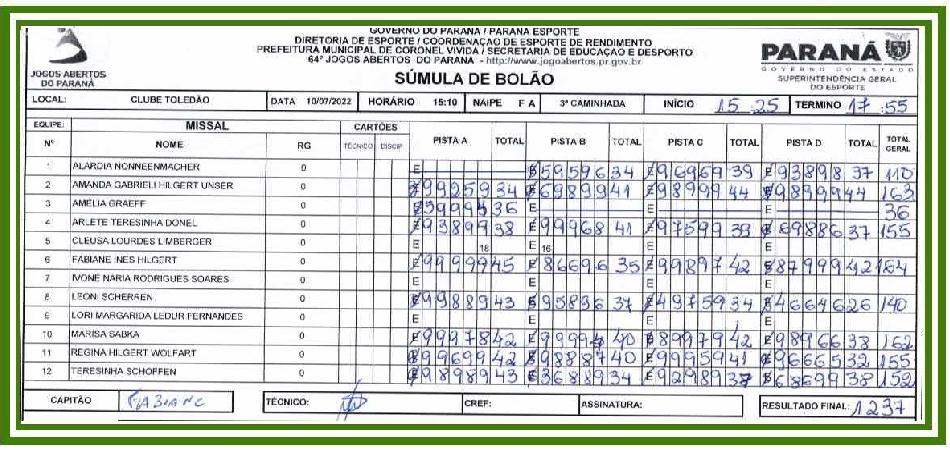 GOVERNO DO PARANÁ / PARANÁ ESPORTE
DIRETORIA DE ESPORTE / COORDENAÇÃO DE ESPORTE DE RENDIMENTO
PREFEITURA MUNICIPAL DE CORONEL VIVIDA / SECRETARIA DE EDUCAÇÃO E DESPORTO
64º JOGOS ABERTOS DO PARANÁ - http://www.jogoabertos.pr.gov.br
JOGOS ABERTOS
DO PARANÁ
SÚMULA DE BOLÃO
PARANÁ
GOVERNO DO ESTADO
SUPERINTENDÊNCIA GERAL
DO ESPORTE
LOCAL: CLUBE TOLEDÃO DATA 10/07/2022 HORÁRIO 15:10 NAIPE F A 3ª CAMINHADA INÍCIO 15:25 TERMINO 17:55
EQUIPE: MISSAL CARTÕES PISTA A TOTAL PISTA B TOTAL PISTA C TOTAL PISTA D TOTAL TOTAL GERAL
Nº NOME RG TÉCNICO DISCIP.
1 ALARDIA NONNEENMACHER 0 E 59596 34 96969 39 93898 37 110
2 AMANDA GABRIELI HILGERT UNSER 0 99259 34 69899 41 98999 44 98999 44 163
3 AMELIA GRAEFF 0 36 E E E 36
4 ARLETE TERESINHA DONEL 0 93899 38 99968 41 97599 39 69886 37 155
5 CLEUSA LOURDES LIMBERGER 0 E 18 E 16 E E
6 FABIANE INES HILGERT 0 99999 45 86696 35 99897 42 87999 42 164
7 IVONE MARIA RODRIGUES SOARES 0 E E E E
8 LEONI SCHERREN 0 99889 43 95836 37 49759 34 46646 26 140
9 LORI MARGARIDA LEDUR FERNANDES 0 E E E E
10 MARISA SABKA 0 99978 42 99994 40 89979 42 98966 38 162
11 REGINA HILGERT WOLFART 0 99699 42 98887 40 99959 41 96665 32 155
12 TERESINHA SCHOFFEN 0 98989 43 36889 34 92989 37 68699 38 152
CAPITÃO FABIANE TÉCNICO: CREF: ASSINATURA: RESULTADO FINAL: 1237